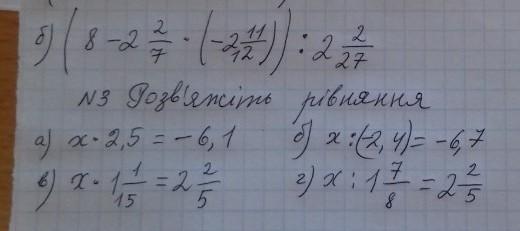 б) (8 - 2 2/7 · (-2 11/12)) : 2 2/27
№3 Розв'яжіть рівняння
а) x · 2,5 = -6,1 б) x : (-2,4) = -6,7
в) x · 1 1/15 = 2 2/5 г) x : 1 7/8 = 2 2/5